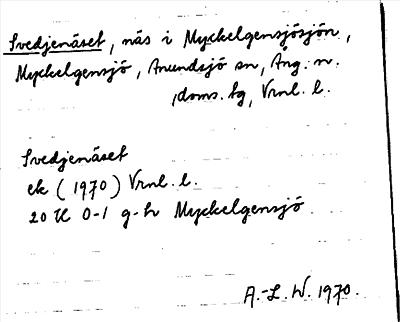 Svedjenäset, näs i Myckelgensjösjön,
Myckelgensjö, Anundsjö sn, Ång. n.
doms. tg, Vrnl. l.
Svedjenäset
ek (1970) Vrnl. l.
20 H 0-1 g-h Myckelgensjö
A.-L. W. 1970.